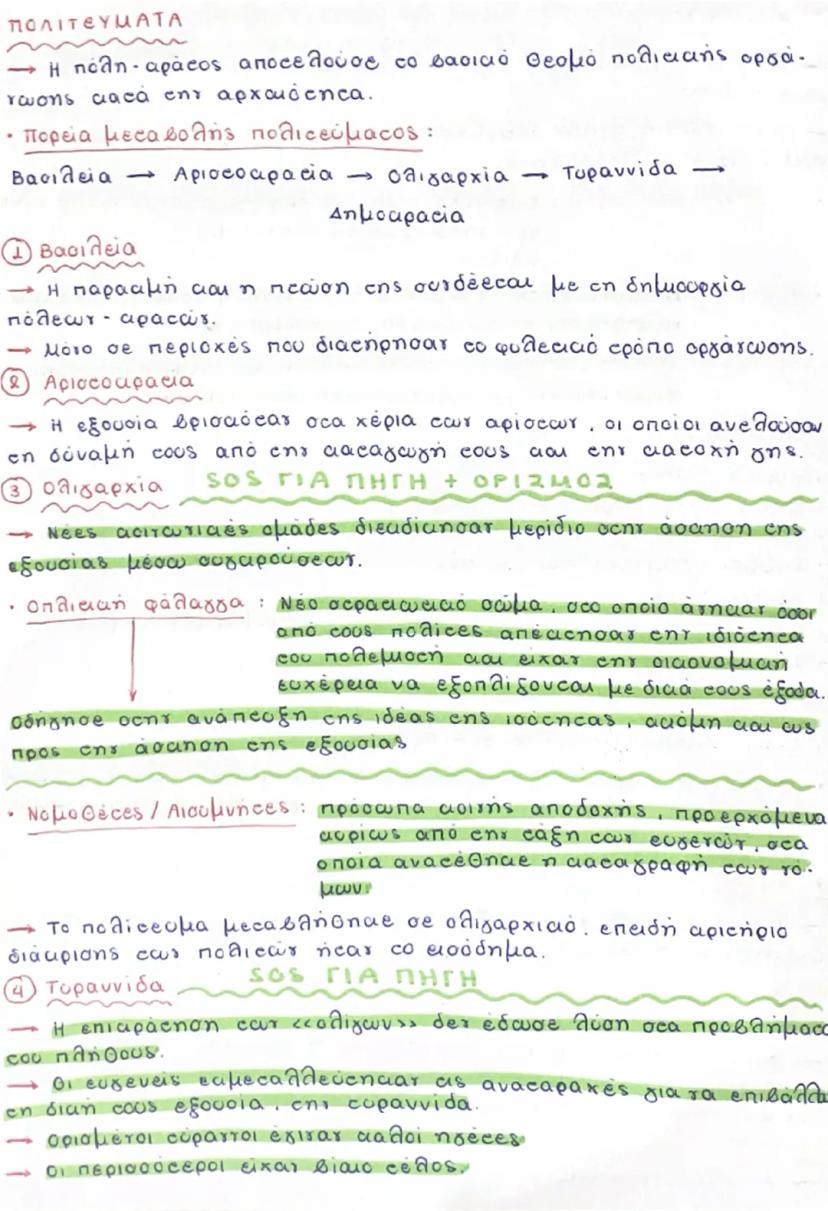 ΠΟΛΙΤΕΥΜΑΤΑ
→ Η πόλη-κράτος αποτελούσε το βασικό θεσμό πολιτικής οργά-
νωσης κατά την αρχαιότητα.
• Πορεία μεταβολής πολιτεύματος:
Βασιλεία → Αριστοκρατία → Ολιγαρχία → Τυραννίδα →
Δημοκρατία
① Βασιλεία
→ Η παρακμή και η πτώση της συνδέεται με τη δημιουργία
πόλεων-κρατών.
→ Μόνο σε περιοχές που διατήρησαν το φυλετικό τρόπο οργάνωσης.
② Αριστοκρατία
→ Η εξουσία βρισκόταν στα χέρια των αρίστων, οι οποίοι αντλούσαν
τη δύναμή τους από την καταγωγή τους και την κατοχή γης.
③ Ολιγαρχία SOS ΓΙΑ ΠΗΓΗ + ΟΡΙΣΜΟΣ
→ Νέες κοινωνικές ομάδες διεκδίκησαν μερίδιο στην άσκηση της
εξουσίας μέσω συγκρούσεων.
• Οπλιτική φάλαγγα: Νέο στρατιωτικό σώμα, στο οποίο άνηκαν όσοι
από τους πολίτες απέκτησαν την ιδιότητα
του πολεμιστή και είχαν την οικονομική
ευχέρεια να εξοπλίζονται με δικά τους έξοδα.
Οδήγησε στην ανάπτυξη της ιδέας της ισότητας, ακόμη και ως
προς την άσκηση της εξουσίας
• Νομοθέτες / Αισυμνήτες: πρόσωπα κοινής αποδοχής, προερχόμενα
κυρίως από την τάξη των ευγενών, στα
οποία ανατέθηκε η καταγραφή των νό-
μων.
→ Το πολίτευμα μεταβλήθηκε σε ολιγαρχικό, επειδή κριτήριο
διάκρισης των πολιτών ήταν το εισόδημα.
④ Τυραννίδα SOS ΓΙΑ ΠΗΓΗ
→ Η επικράτηση των «ολίγων» δεν έδωσε λύση στα προβλήματα
του πλήθους.
→ Οι ευγενείς εκμεταλλεύτηκαν τις αναταραχές για να
τη δική τους εξουσία, την τυραννίδα.
→ Ορισμένοι τύραννοι έγιναν καλοί ηγέτες
→ Οι περισσότεροι είχαν βίαιο τέλος.